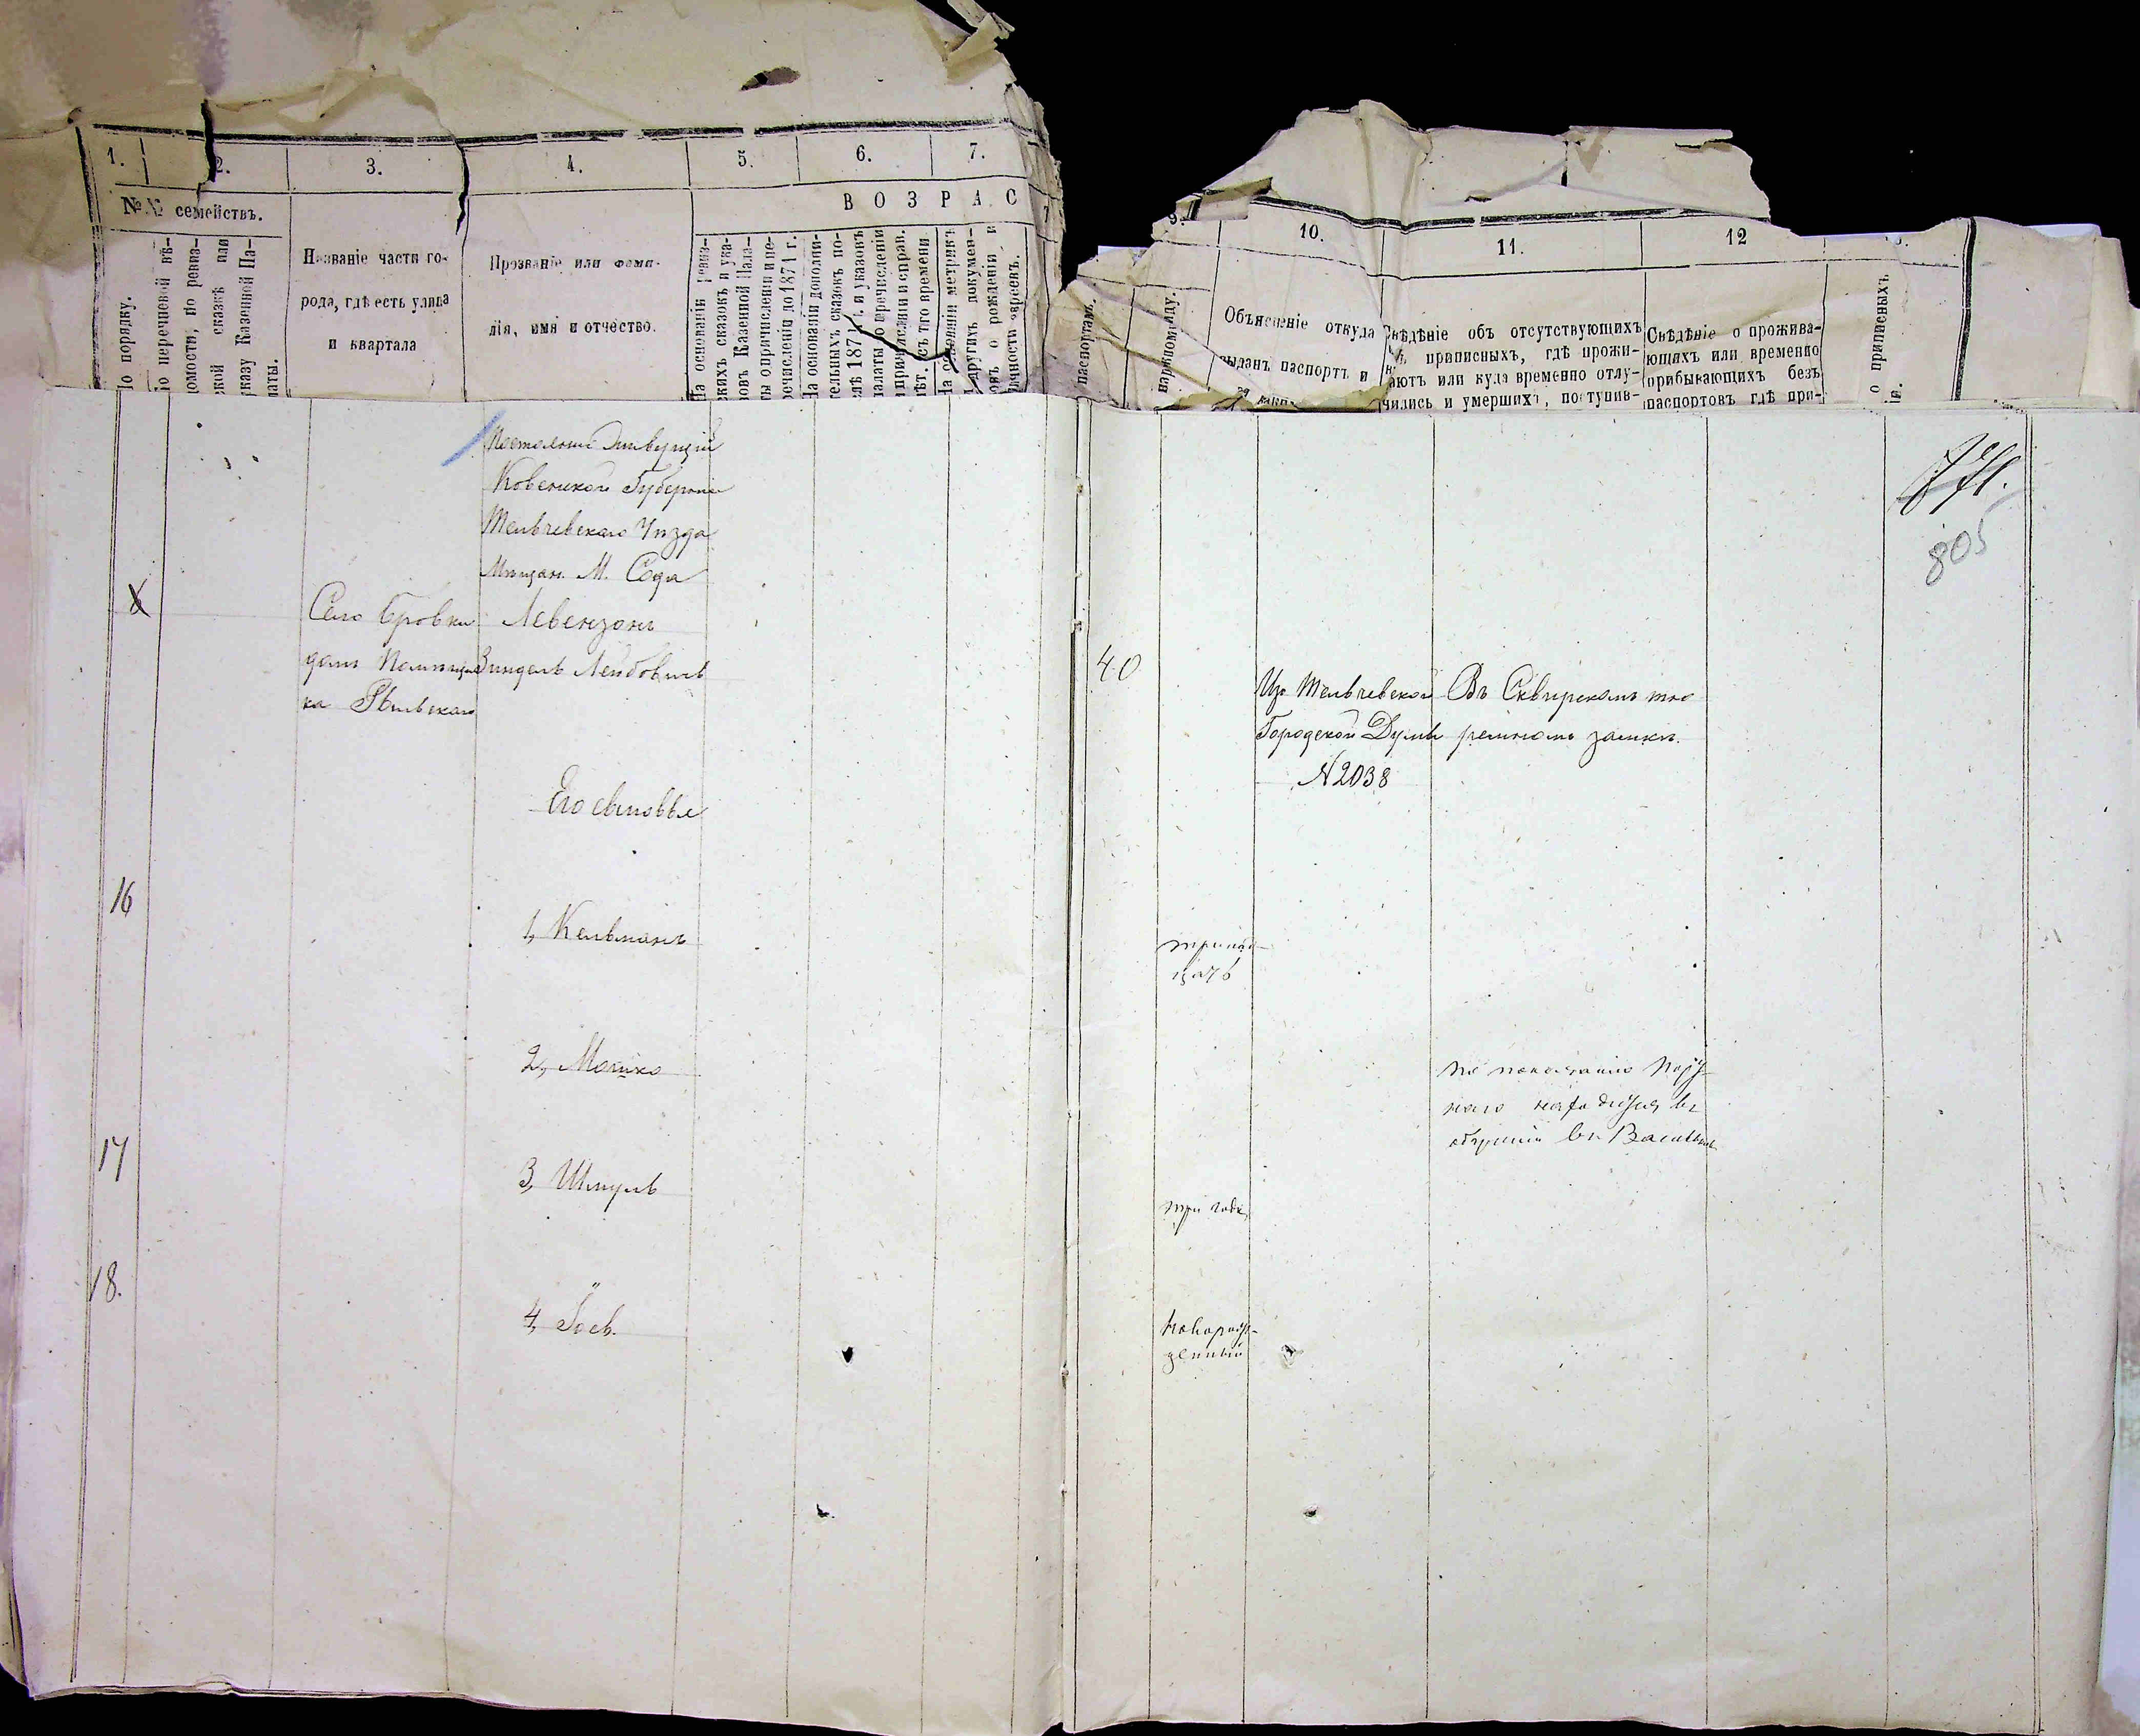 1.
2.
3.
4.
5.
6.
7.
В О З Р А С
№№ семействъ.
По порядку.
По перечневой вѣ-
домости, по ревиз-
ской сказкѣ или
указу Казенной Па-
латы.
Названіе части го-
рода, гдѣ есть улица
и квартала
Прозваніе или фами-
лія, имя и отчество.
На основаніи ревиз-
скихъ сказокъ и ука-
зовъ Казенной Пала-
ты о причисленіи и пе-
речисленіи до 1871 г.
На основаніи дополни-
тельныхъ сказокъ по-
слѣ 1871 г. и указовъ
палаты о перечисленіи
и причисленіи и справ.
лѣт. съ того времени
На основаніи метрикъ
и другихъ докумен-
товъ о рожденіи и
личности евреевъ.
9.
10.
11.
12
паспортамъ.
наружному виду.
Объясненіе откуда
выданъ паспортъ и
Свѣдѣніе объ отсутствующихъ
приписныхъ, гдѣ прожи-
ваютъ или куда временно отлу-
чились и умершихъ, поступив-
Свѣдѣніе о прожива-
ющихъ или временно
прибывающихъ безъ
паспортовъ гдѣ при-
о приписныхъ
805
Ковенской Губерніи
Тельшевскаго Уѣзда
Мѣщан. М. Седа
Х
Село Бровки
домъ Помѣщи
ка
Левензонъ
Зиндель Лейбовичъ
40
Изъ Тельшевской
Городской Думы
N 2038
Въ Сквирскомъ тю
ремномъ замкѣ.
Его сыновья
16
1, Кельманъ
тринад-
цать
2, Мошко
по показанію
находится въ
въ
17
3, Шмуль
три года
18.
4, Іось.
новорож-
денный